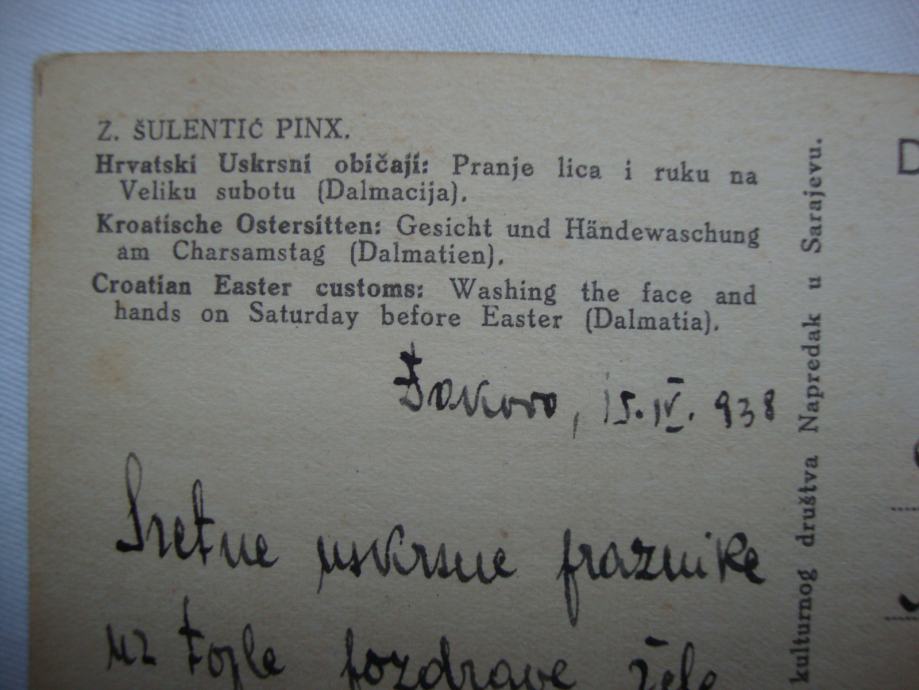 Z. ŠULENTIĆ PINX.
Hrvatski Uskrsni običaji: Pranje lica i ruku na
Veliku subotu (Dalmacija).
Kroatische Ostersitten: Gesicht und Händewaschung
am Charsamstag (Dalmatien).
Croatian Easter customs: Washing the face and
hands on Saturday before Easter (Dalmatia).
Đakovo, 15.IV. 938
Sretne uskrsne praznike
uz tople pozdrave žele
kulturnog društva Napredak u Sarajevu.
D